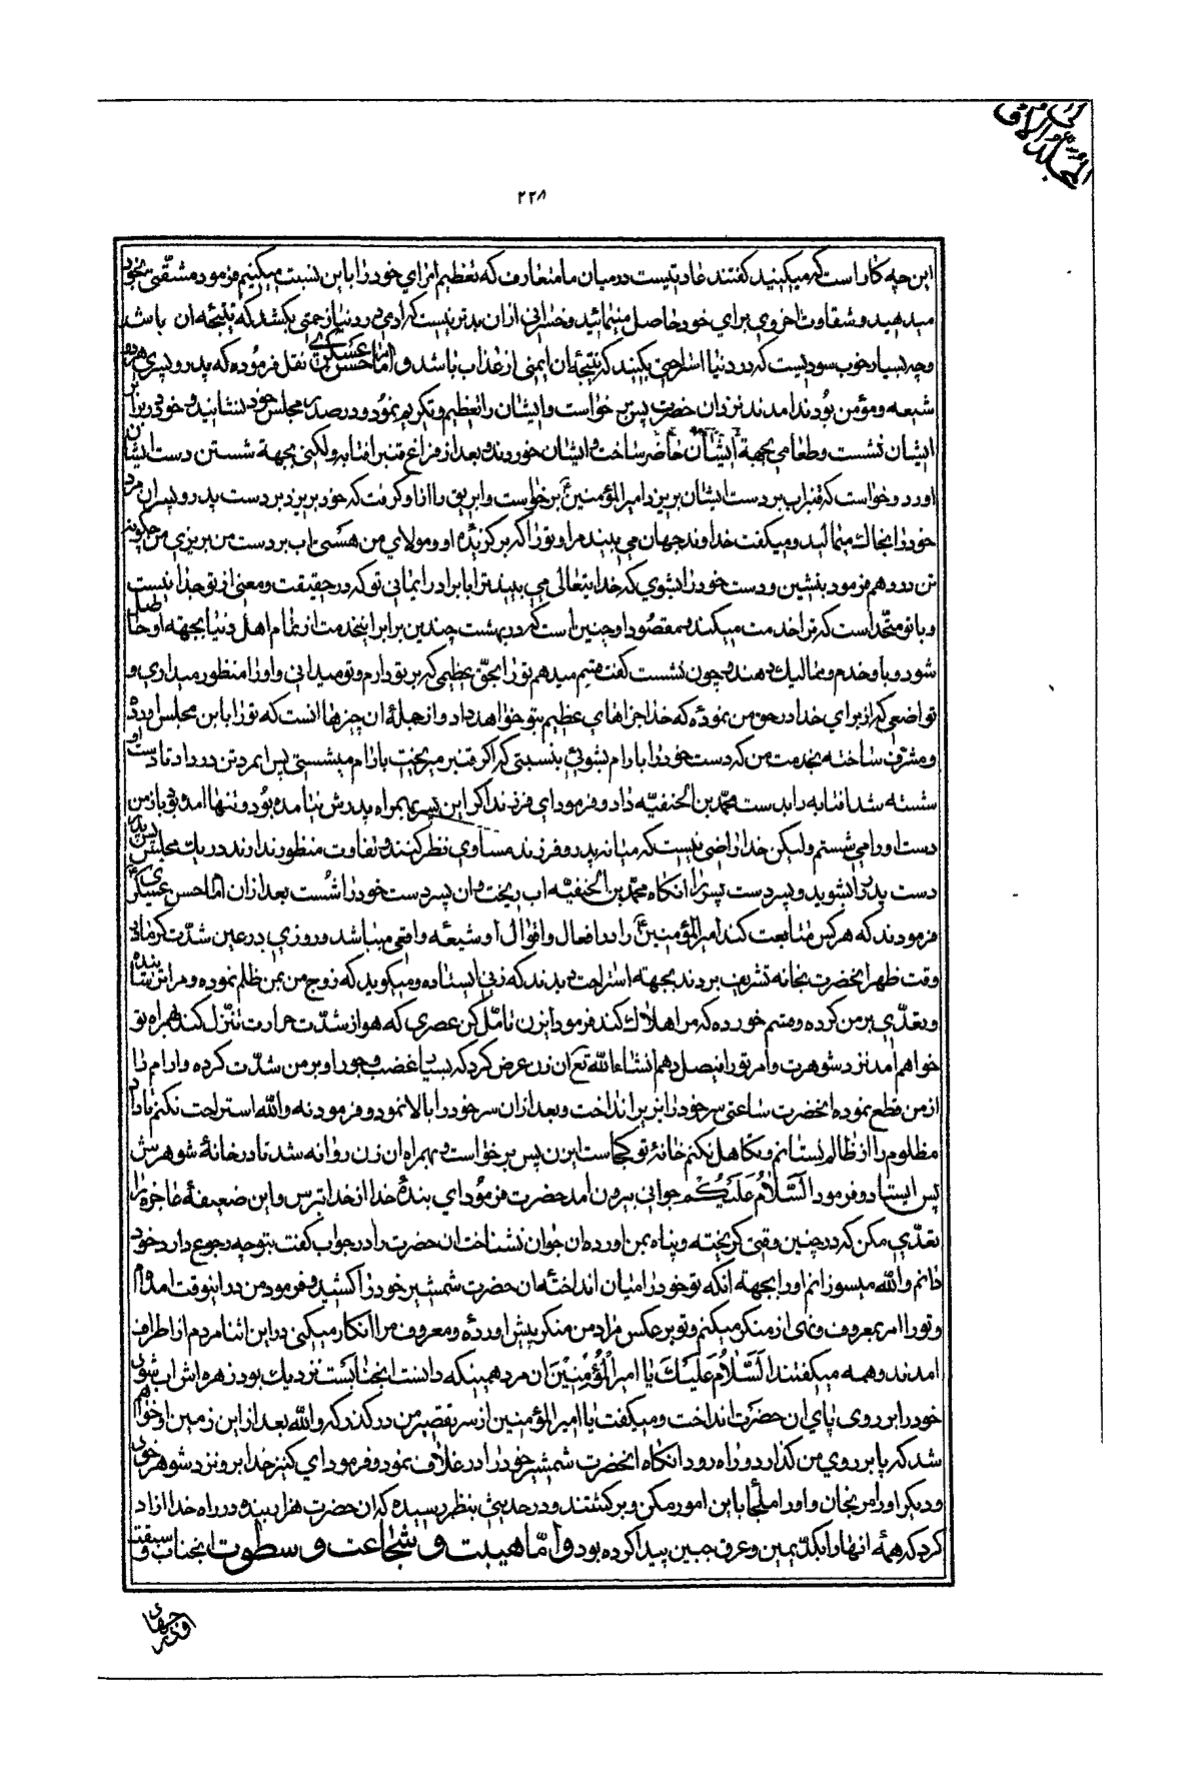 المجلد الاول
۲۲۸
این چه کار است که میکنید گفتند عادتیست در میان ما متعارف که تعظیم امرای خود را باین نسبت میکنیم فرمود مشقتی بخود
میدهید و شقاوت اخروی برای خود حاصل مینمائید و خسرانی ازان بدتر نیست که ادمی در دنیا زحمتی بکشد که نتیجه ان باشد
و چه بسیار خوب سودیست که در دنیا استراحتی بکنند که نتیجه ان ایمنی از عذاب باشد و امام حسن عسکری نقل فرموده که پدر و پسری هردو
شیعه و مؤمن بودند امدند نزد ان حضرت پس برخواست و ایشان را تعظیم و تکریم نمود و در صدر مجلس خود بنشانید و خود در برابر
ایشان نشست و طعامی بجهة ایشان حاضر ساخت و ایشان خوردند و بعد از فراغ قنبر افتابه و لگنی بجهة شستن دست ایشان
اورد و خواست که قنبر اب بر دست ایشان بریزد امیرالمؤمنین برخواست و ابریق را از او گرفت که خود بریزد بر دست پدر و پس ان مرد
خود را بخاک میمالید و میگفت خداوند جهان می بیند مرا و تو را که برگزیده او و مولای من هستی اب بر دست من بریزی من چگونه
تن دردهم فرمود بنشین و دست خود را بشوی که خدایتعالی می بیند ترا با برادر ایمانی تو که در حقیقت و معنی از تو جدا نیست
و با تو متحد است که ترا خدمت میکند و مقصود او چنین است که در بهشت چندین برابر اینخدمت از تمام اهل دنیا بجهته او حاصل
شود و باو خدم و ممالیک دهند و چون نشست گفت قسم میدهم تو را بحق عظیمی که بر تو دارم و تو میدانی و او را منظور میداری و
تواضعی که از برای خدا در حق من نموده که خدا جزاهای عظیم بتو خواهد داد و از جمله ان چیزها انست که تو را باین مجلس اورده
و مشرف ساخته بخدمت من که دست خود را بارام بشوئی بنسبتی که اگر قنبر میریخت بارام میشستی پس ان مرد تن درداد تا دست او
شسته شد افتابه را بدست محمد بن الحنفیه داد و فرمود ای فرزند اگر این پسر بهمراه پدرش نیامده بود و تنها امده بود باز من
دست او را می شستم ولیکن خدا راضی نیست که میانه پدر و فرزند مساوی نظر کنند و تفاوت منظور ندارند در یک مجلس پس پدر
دست پدر را بشوید و پسر دست پسر را انگاه محمد بن الحنفیه اب ریخت و ان پسر دست خود را شست بعد ازان امام حسن عسکری
فرمودند که هر کس متابعت کند امیرالمؤمنین را در افعال و اقوال او شیعه واقعی میباشد و روزی در عین شدت گرما در
وقت ظهر انحضرت بخانه تشریف بردند بجهته استراحت دیدند که زنی ایستاده و میگوید که زوج من بمن ظلم نموده و مرا ترسانیده
و تعدی بر من کرده و قسم خورده که مرا هلاک کند فرمود ایزن تامل کن عصری که هوا از شدت حرارت تنزل کند همراه تو
خواهم امد نزد شوهرت و امر تو را فیصل دهم انشاءالله تع ان زن عرض کرد که بسیار غضب و جور او بر من شدت کرده و ارام را
از من قطع نموده انحضرت ساعتی سر خود را بزیر انداخت و بعد ازان سر خود را بالا نمود و فرمود نه والله استراحت نکنم تا داد
مظلوم را از ظالم بستانم و تکاهل نکنم خانۀ تو کجاست ایزن پس برخواست و بهمراه ان زن روانه شد تا در خانۀ شوهرش
پس ایستاد و فرمود السلام علیکم جوانی بیرون امد حضرت فرمود ای بندۀ خدا از خدا بترس و این ضعیفۀ عاجزه را
تعدی مکن که در چنین وقتی گریخته و پناه بمن اورده ان جوان نشناخت ان حضرت را در جواب گفت بتو چه رجوع دارد خود
دانم والله میسوزانم او را بجهتۀ انکه تو خود را میان انداختۀ ان حضرت شمشیر خود را کشید و فرمود من در اینوقت امدم
و تو را امر بمعروف و نهی از منکر میکنم و تو بر عکس مراد من منکر پیش اورده و معروف مرا انکار میکنی در این اثنا مردم از اطراف
امدند و همه میگفتند السلام علیک یا امیرالمؤمنین ان مرد همینکه دانست انجنابست نزدیک بود زهره اش اب شود
خود را بر روی پای ان حضرت انداخت و میگفت یا امیرالمؤمنین از سر تقصیر من درگذر که والله بعد از این زمین او خواهم
شد که پا بر روی من گذارد و راه رود انگاه انحضرت شمشیر خود را در غلاف نمود و فرمود ای کنیز خدا برو نزد شوهر خود
و دیگر او را مرنجان و او را ملجأ باین امور مکن و برگشتند و در حدیثی بنظر رسیده که ان حضرت هزار بنده در راه خدا ازاد
کرد که همۀ انها را بکد یمین و عرق جبین پیدا کرده بود و اما هیبت و شجاعت و سطوت انجناب سبقت